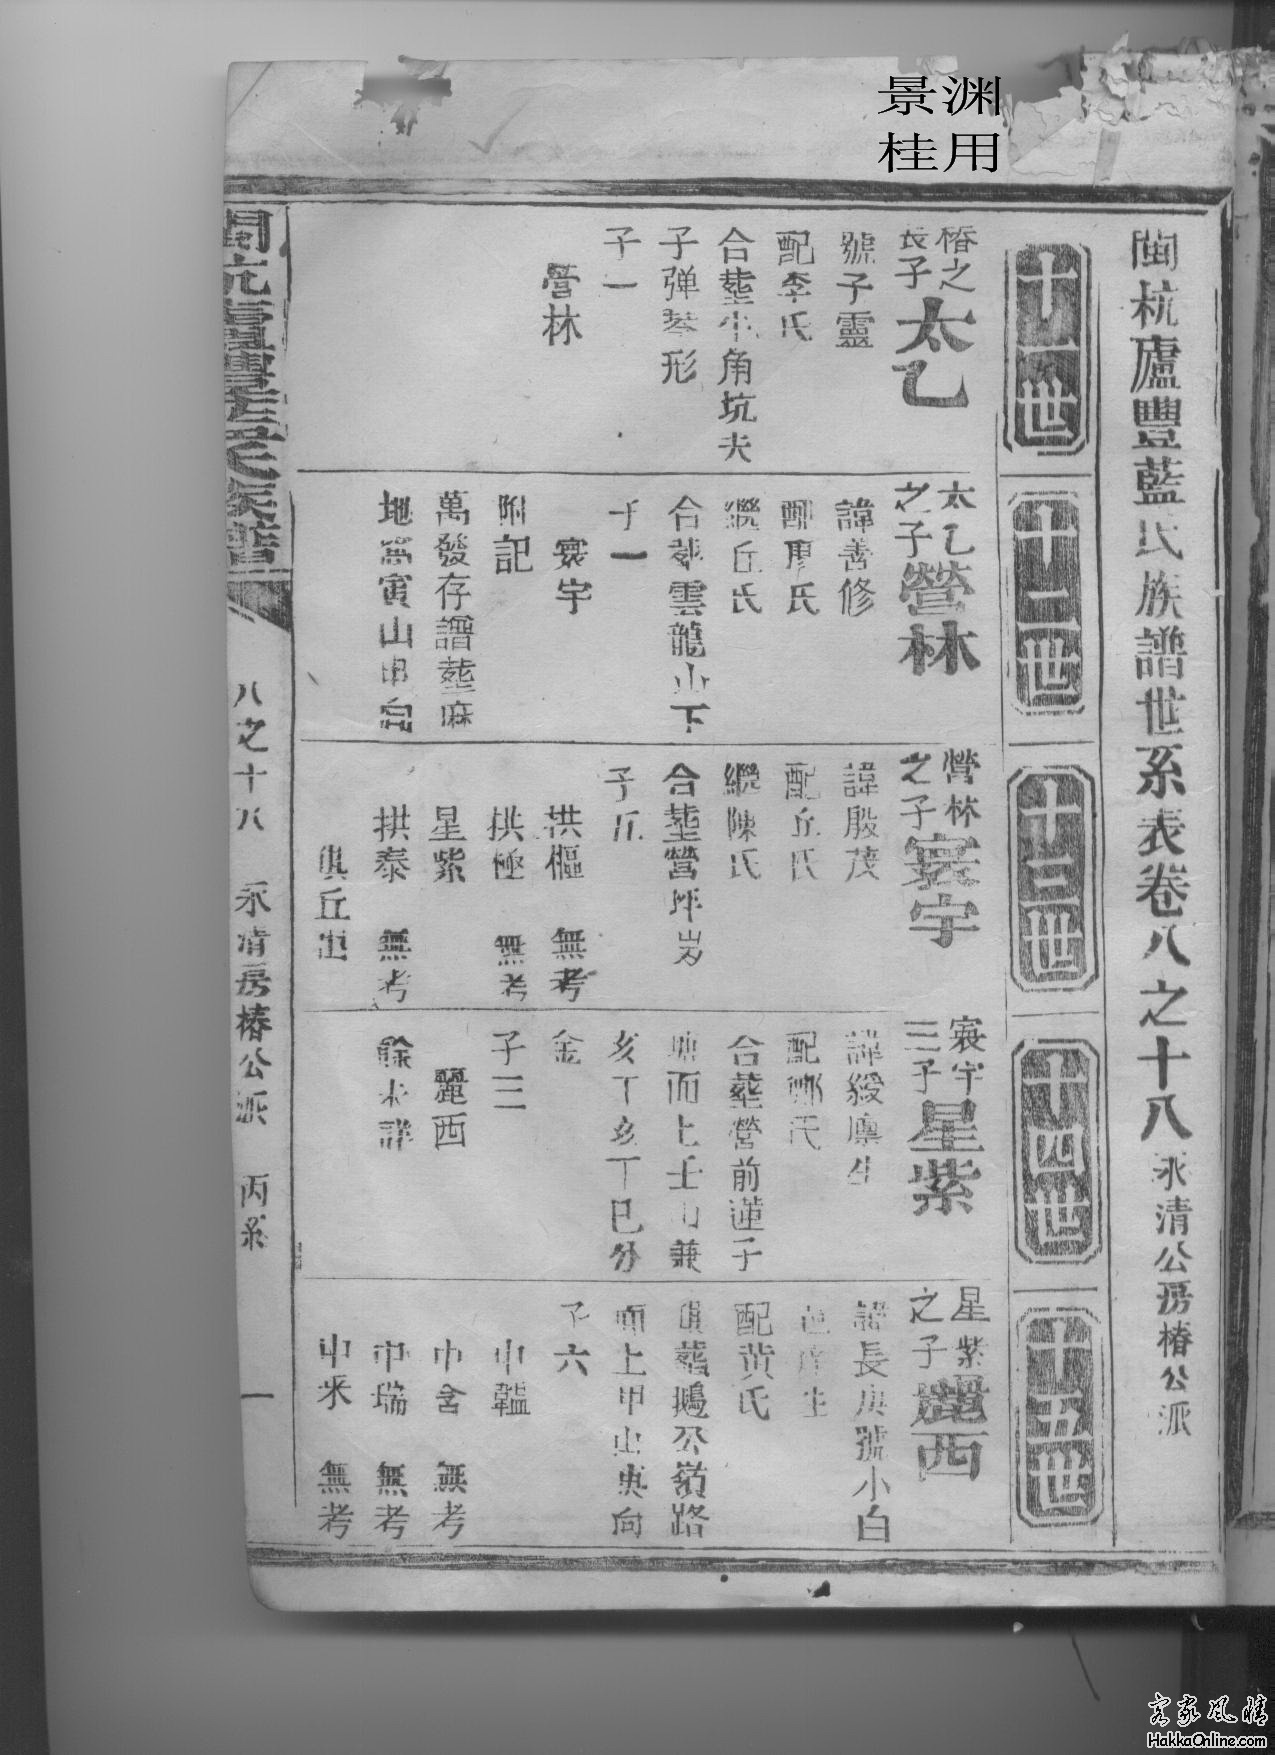 景渊
桂用
閩杭廬豐藍氏族譜世系表卷八之十八永清公房椿公派
十一世
椿之
長子
太乙
號子靈
配李氏
合塟小角坑夫
子彈琴形
子一
營林
十二世
太乙
之子
營林
諱善修
配廖氏
繼丘氏
合塟雲龍山下
子一
寰宇
附記
萬發存譜塟麻
地窩寅山申向
十三世
營林
之子
寰宇
諱殷茂
配丘氏
繼陳氏
合塟營坪岁
子五
拱樞 無考
拱極 無考
星紫
拱泰 無考
俱丘出
十四世
寰宇
三子
星紫
諱綬廩生
配鄭氏
合塟營前蓮子
塘面上壬山兼
亥丁亥丁巳分
金
子三
麗西
餘未詳
十五世
星紫
之子
麗西
諱長庚號小白
邑庠生
配黄氏
俱塟鵝公嶺路
面上甲山庚向
子六
中韞
中含 無考
中瑞 無考
中采 無考
閩杭廬豐藍氏族譜
八之十八
永清房椿公派
丙系
一
客家風情
HakkaOnline.com